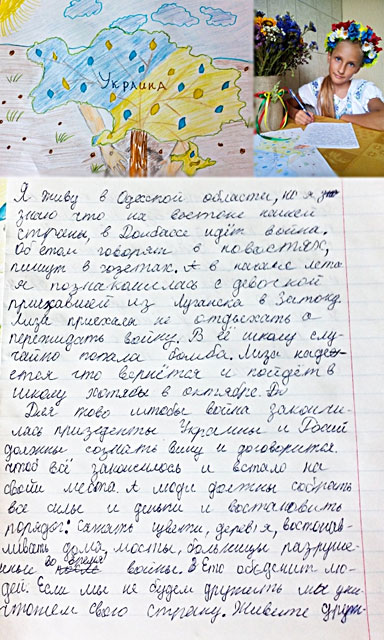 Украина
Я живу в Одесской области, но я
знаю что на востоке нашей
страны, в Донбассе идёт война.
Об етом говорят в новостях,
пишут в газетах. А в начале лета
я познакомилась с девочкой
приехавшей из Луганска в Затоку.
Лиза приехала не отдыхать а
пережидать войну. В её школу слу-
чайно попала бомба. Лиза наде-
ется что вернётся и пойдёт в
школу хотябы в октябре.
Для тово штобы война закончи-
лась призеденты Украины и Росий
должны созмать вищу и договорится.
Чтоб всё закончилось и встало на
свойи места. А люди должны собрать
все силы и деньги и востановить
порядок: сажать цветы, деревья, востонав-
ливать дома, мосты, больницы разруше-
ные во время войны. Ето обеденит лю-
дей. Если мы не будем дружить мы уни-
чтожем свого страну. Живите друж-